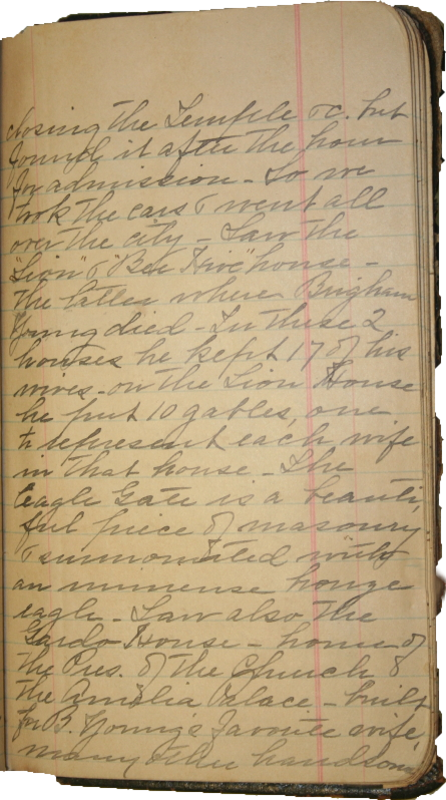 closing the Temple &c. but
found it after the hour
for admission - So we
took the cars & went all
over the city - Saw the
"Lion" & "Bee Hive" house -
the latter where Brigham
Young died - In these 2
houses he kept 17 of his
wives - on the Lion House
he put 10 gables, one
to represent each wife
in that house - The
Eagle Gate is a beauti
ful piece of masonry
& surmounted with
an immense bronze
eagle - Saw also the
Gardo House - home of
the Pres. of the Church &
the Amelia Palace - built
for B. Young's favorite wife,
many other handsome